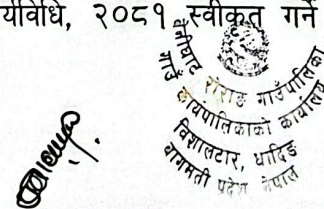 र्यविधि, २०८१ स्वीकृत गर्ने
बेनीघाट रोराङ गाउँपालिका
गाउँ कार्यपालिकाको कार्यालय
विशालटार, धादिङ
बागमती प्रदेश नेपाल